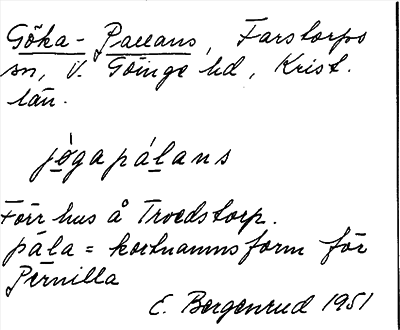 Göka-Pallans, Farstorps
sn, V. Göinge hd, Krist.
län.
jògapálans
Förr hus å Troedstorp.
pála = kortnamnsform för
Pernilla
E. Bergenrud 1951